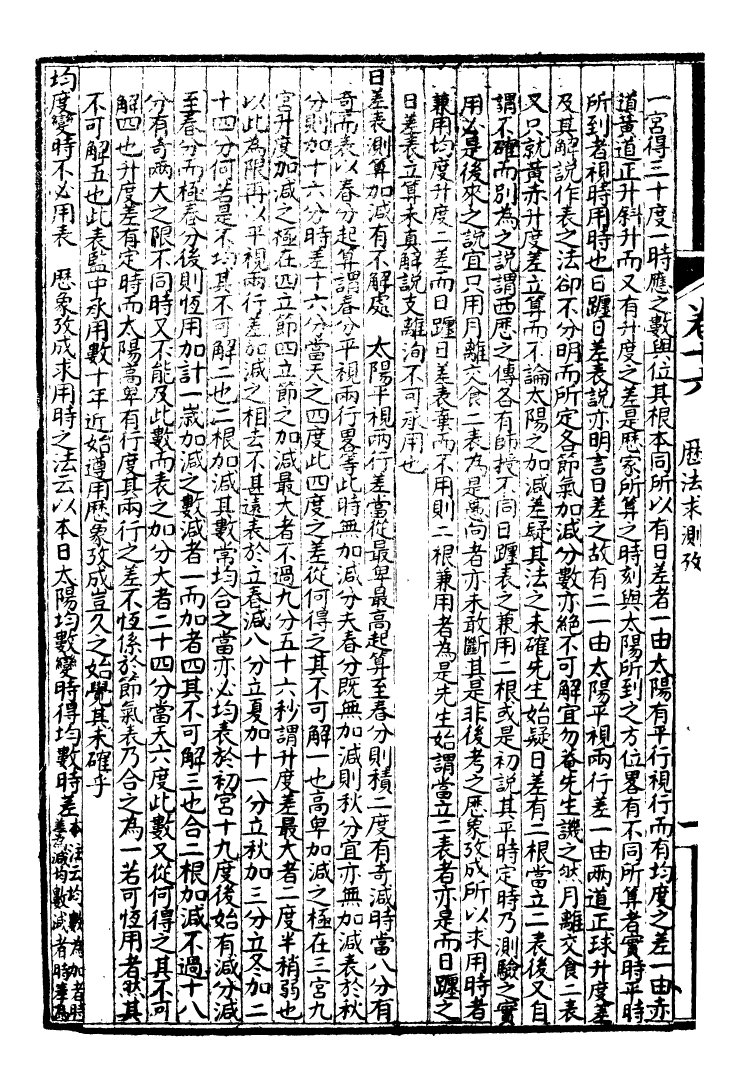 卷十六　曆法求測攷　一
一宮得三十度一時應之數與位其根本同所以有日差者一由太陽有平行視行而有均度之差一由赤
道黃道正升斜升而又有升度之差是曆家所算之時刻與太陽所到之方位畧有不同所算者實時平時
所到者視時用時也日躔日差表說亦明言日差之故有二一由太陽平視兩行差一由兩道正球升度差
及其解說作表之法卻不分明而所定各節氣加減分數亦絕不可解宜勿菴先生譏之然月離交食二表
又只就黃赤升度差立算而不論太陽之加減差疑其法之未確先生始疑日差有二根當立二表後又自
謂不確而別為之說謂西曆之傳各有師授不同日躔表之兼用二根或是初說其平時定時乃測驗之實
用必是後來之說宜只用月離交食二表為是蒿尚者亦未敢斷其是非後考之曆象攷成所以求用時者
兼用均度升度二差而日躔日差表棄而不用則二根兼用者為是先生始謂當立二表者亦是而日躔之
日差表立算未真解說支離洵不可承用也
日差表測算加減有不解處　太陽平視兩行差當從最卑最高起算至春分則積二度有奇減時當八分有
奇而表以春分起算謂春分平視兩行畧等此時無加減分夫春分既無加減則秋分宜亦無加減表於秋
分則加十六分時差十六分當天之四度此四度之差從何得之其不可解一也高卑加減之極在三宮九
宮升度加減之極在四立節四立節之加減最大者不過九分五十六秒謂升度差最大者二度半稍弱也
以此為限再以平視兩行差加減之相去不甚遠表於立春減八分立夏加十一分立秋加三分立冬加二
十四分何若是不均其不可解二也二根加減其數常均合之當亦必均表於初宮十九度後始有減分減
至春分而極春分後則恆用加計一歲加減之數減者一而加者四其不可解三也合二根加減不過十八
分有奇兩大之限不同時又不能及此數而表之加分大者二十四分當天六度此數又從何得之其不可
解四也升度差有定時而太陽高卑有行度其兩行之差不恆係於節氣表乃合之為一若可恆用者然其
不可解五也此表監中承用數十年近始遵用曆象攷成豈久之始覺其未確乎
均度變時不必用表　曆象攷成求用時之法云以本日太陽均數變時得均數時差本注云均數為加者時差為減均數減者時差為